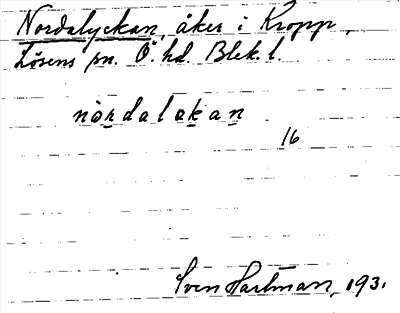 Nordalyckan, åker i Kropp,
Lösens sn. Ö. hd. Blek. l.
nordalekan
16
Sven Hartman, 193.